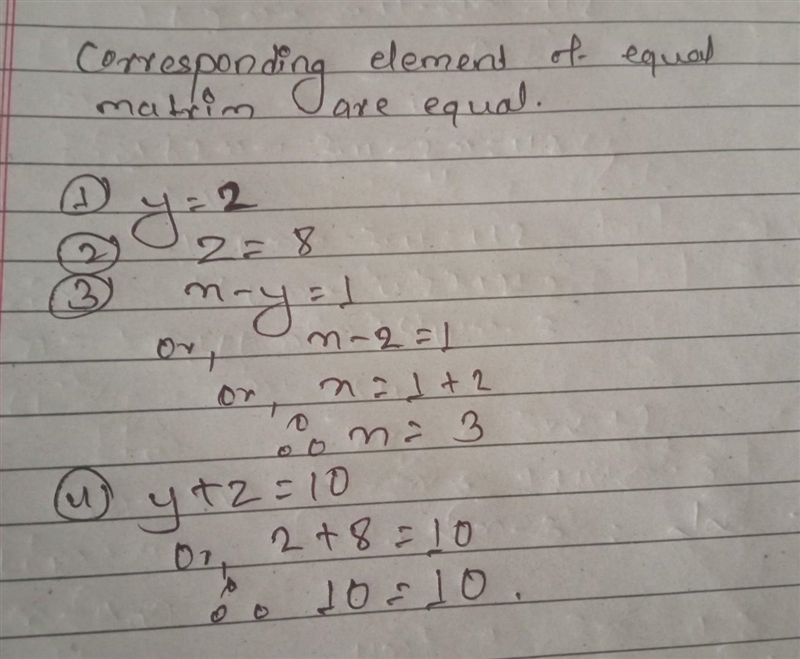 Corresponding element of equal
matrix are equal.
① y = 2
② z = 8
③ x - y = 1
or, x - 2 = 1
or, x = 1 + 2
∴ x = 3
④ y + z = 10
or, 2 + 8 = 10
∴ 10 = 10.